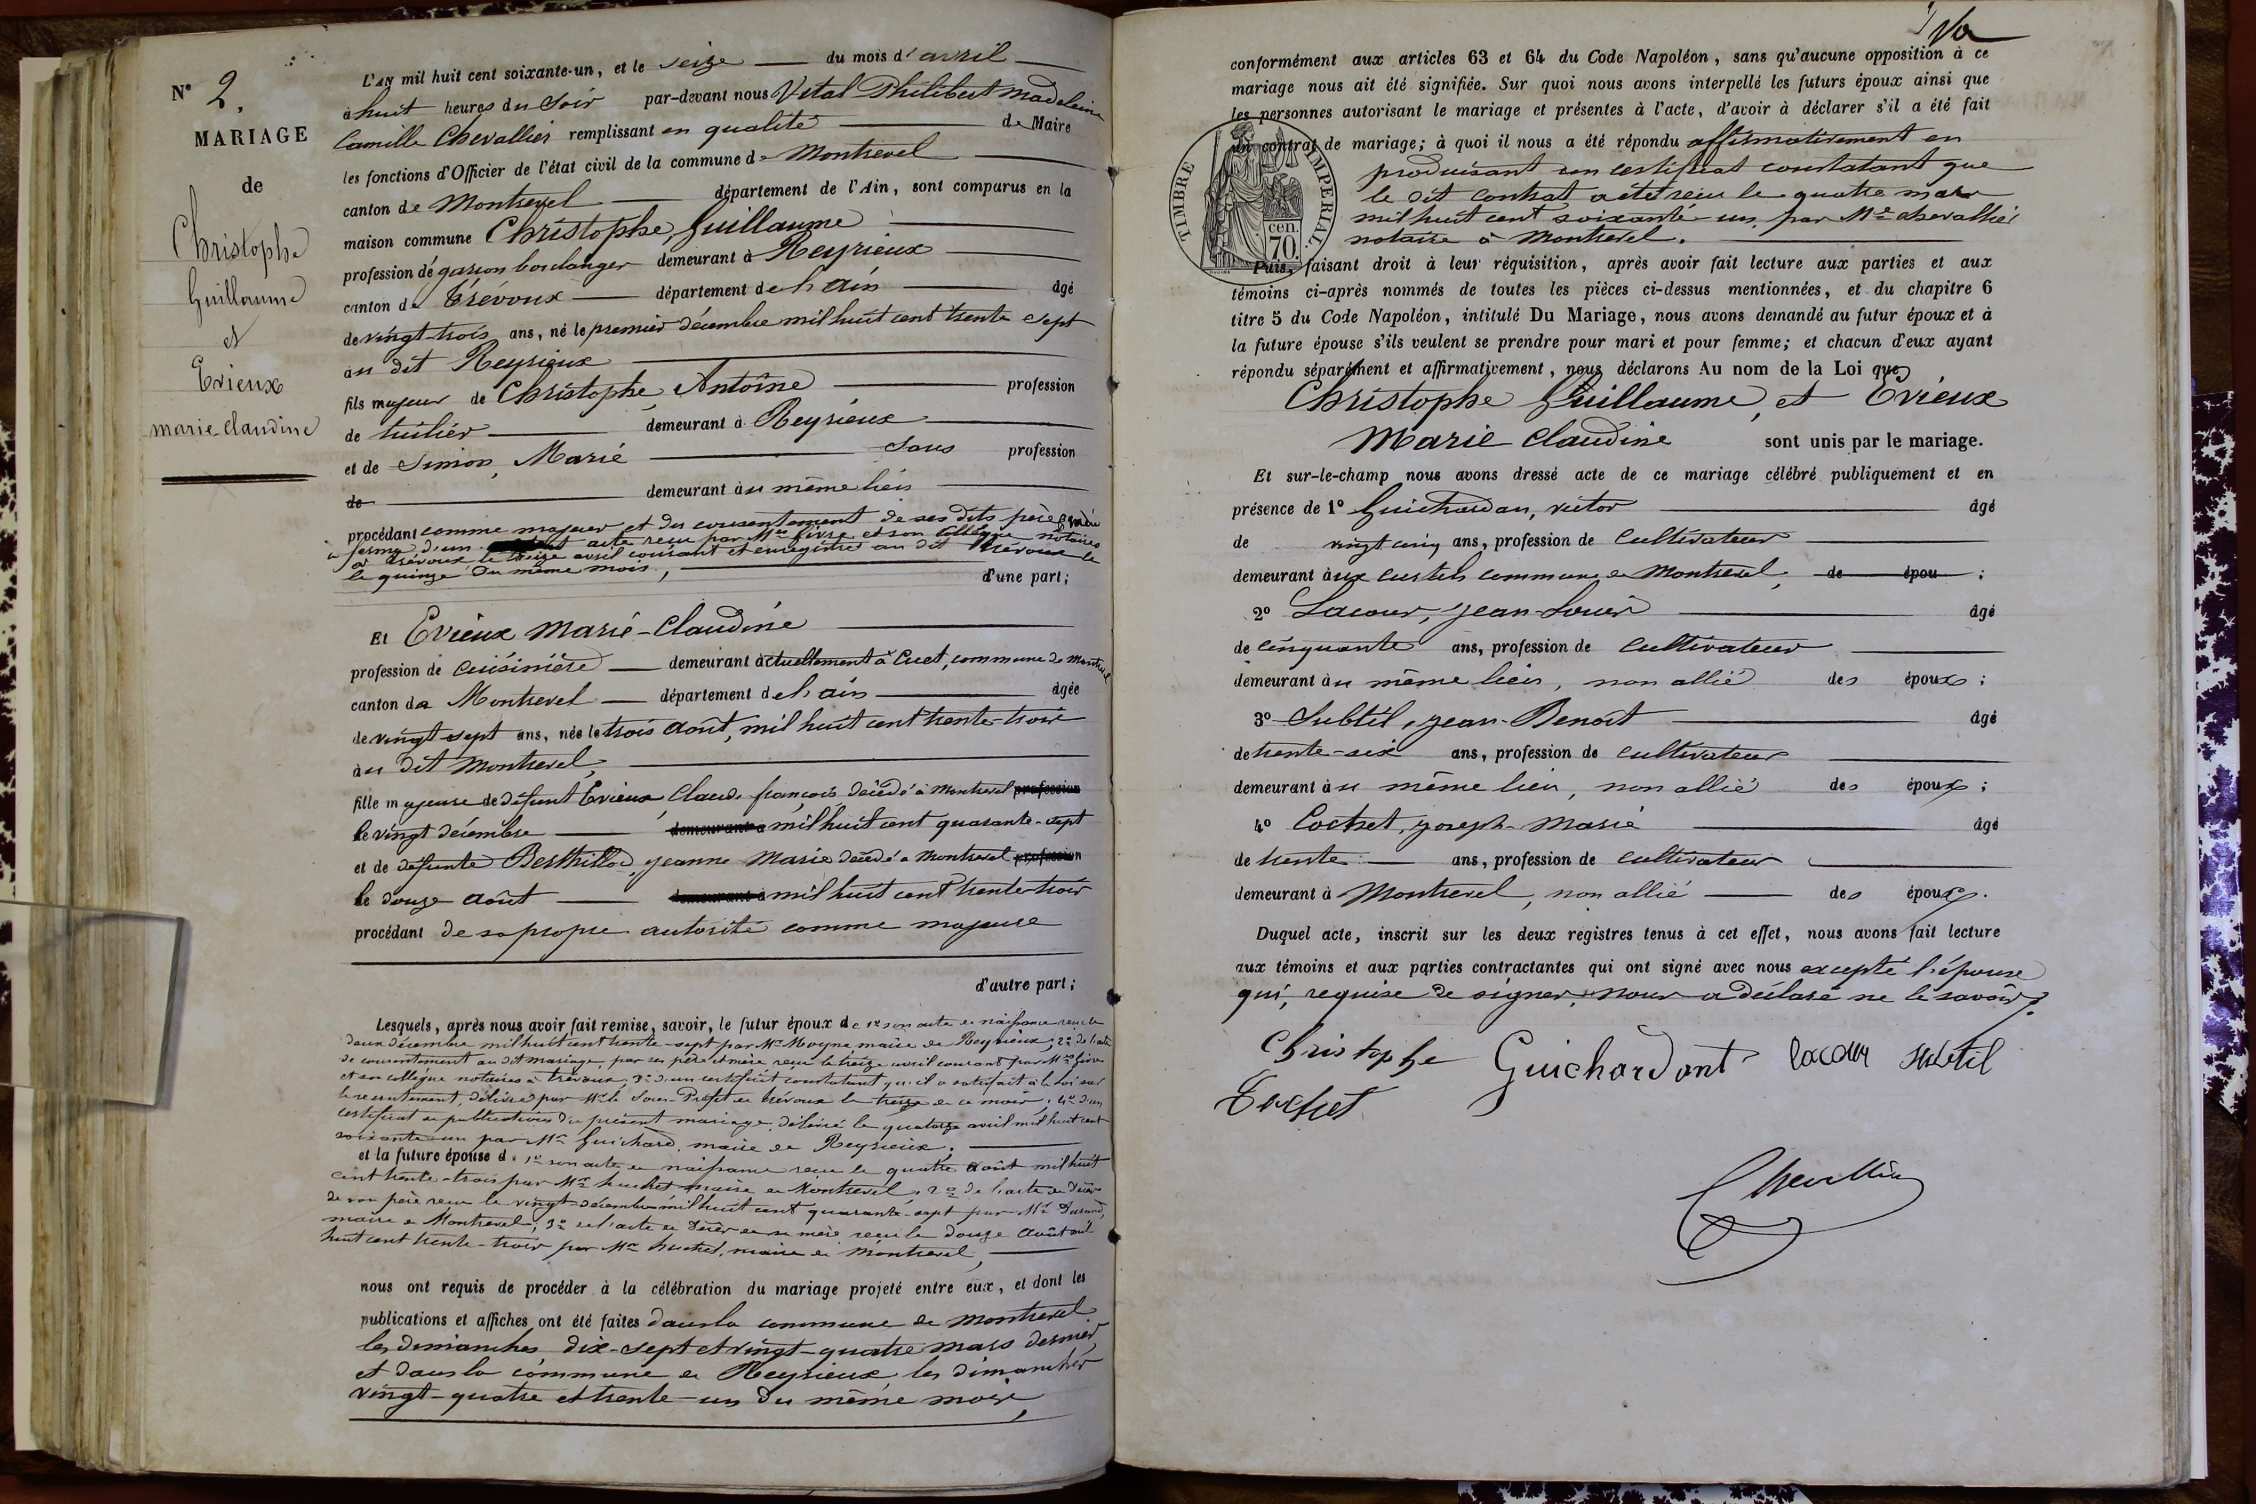 N° 2.
MARIAGE
de
Christophe
Guillaume
et
Evieux
marie-claudine
L'AN mil huit cent soixante-un, et le seize du mois d'avril
à huit heures du soir par-devant nous Vital Philibert Madeleine
Camille Chevallier remplissant en qualité de Maire
les fonctions d'Officier de l'état civil de la commune de Montrevel
canton de Montrevel département de l'Ain, sont comparus en la
maison commune Christophe, Guillaume
profession de garçon boulanger demeurant à Reyrieux
canton de Trévoux département de l'ain âgé
de vingt-trois ans, né le premier décembre mil huit cent trente sept
au dit Reyrieux
fils majeur de Christophe, Antoine profession
de tuilier demeurant à Reyrieux
et de Simon, Marie sans profession
de demeurant au même lieu
procédant comme majeur et du consentement de ses dits père et mère
à forme d'un acte reçu par Me Givre et son collègue notaires
à Trévoux le treize avril courant et enregistré au dit Trévoux le
le quinze du même mois, d'une part;
Et Evieux Marie-Claudine
profession de cuisinière demeurant actuellement à Cuet, commune de Montrevel
canton de Montrevel département de l'ain âgée
de vingt-sept ans, née le trois août, mil huit cent trente-trois
au dit Montrevel,
fille majeure de défunt Evieux, Claude françois décédé à Montrevel profession
le vingt décembre demeurant à mil huit cent quarante-sept
et de défunte Berthillod, jeanne Marie décédé à Montrevel profession
le douze août demeurant à mil huit cent trente-trois
procédant de sa propre autorité comme majeure
d'autre part;
Lesquels, après nous avoir fait remise, savoir, le futur époux de 1° son acte de naissance reçu le
deux décembre mil huit cent trente-sept par Mr Moyne maire de Reyrieux; 2° de l'acte
de consentement au dit mariage, par ses père et mère reçu le treize avril courant par Me Givre
et son collègue notaires à Trévoux; 3° d'un certificat constatant qu'il a satisfait à la loi sur
le recrutement, délivré par Mr le Sous-Préfet de Trévoux le treize de ce mois; 4° d'un
certificat de publications du présent mariage délivré le quatorze avril mil huit cent
soixante-un par Mr Guichard, maire de Reyrieux;
et la future épouse de 1° son acte de naissance reçu le quatre août mil huit
cent trente-trois par Mr maire de Montrevel, 2° de l'acte de décès
de son père reçu le vingt-décembre mil huit cent quarante-sept par Mr Durand,
maire de Montrevel; 3° de l'acte de décès de sa mère reçu le douze août mil
huit cent trente-trois par Mr maire de Montrevel,
nous ont requis de procéder à la célébration du mariage projeté entre eux, et dont les
publications et affiches ont été faites dans la commune de Montrevel
les dimanches dix-sept et vingt-quatre mars dernier,
et dans la commune de Reyrieux, les dimanches
vingt-quatre et trente-un du même mois,
conformément aux articles 63 et 64 du Code Napoléon, sans qu'aucune opposition à ce
mariage nous ait été signifiée. Sur quoi nous avons interpellé les futurs époux ainsi que
les personnes autorisant le mariage et présentes à l'acte, d'avoir à déclarer s'il a été fait
un contrat de mariage; à quoi il nous a été répondu affirmativement en
produisant un certificat constatant que
le dit contrat a été reçu le quatre mars
mil huit cent soixante-un, par Me chevallier
notaire à Montrevel.
TIMBRE IMPERIAL.
cen.
70.
Puis, faisant droit à leur réquisition, après avoir fait lecture aux parties et aux
témoins ci-après nommés de toutes les pièces ci-dessus mentionnées, et du chapitre 6
titre 5 du Code Napoléon, intitulé Du Mariage, nous avons demandé au futur époux et à
la future épouse s'ils veulent se prendre pour mari et pour femme; et chacun d'eux ayant
répondu séparément et affirmativement, nous déclarons Au nom de la Loi que
Christophe Guillaume, et Evieux
Marie Claudine sont unis par le mariage.
Et sur-le-champ nous avons dressé acte de ce mariage célébré publiquement et en
présence de 1° Guichardan, victor âgé
de vingt cinq ans, profession de cultivateur
demeurant aux commune de Montrevel, de épou ;
2° Lacour, jean-Louis âgé
de cinquante ans, profession de cultivateur
demeurant au même lieu, non allié des époux;
3° Subtil, jean-Benoit âgé
de trente-six ans, profession de cultivateur
demeurant au même lieu, non allié des époux;
4° Cochet, joseph-Marie âgé
de trente ans, profession de cultivateur
demeurant à Montrevel, non allié des époux.
Duquel acte, inscrit sur les deux registres tenus à cet effet, nous avons fait lecture
aux témoins et aux parties contractantes qui ont signé avec nous excepté l'épouse
qui, requise de signer, nous a déclaré ne le savoir.
Christophe Guichardant lacour subtil
Cochet
Chevallier